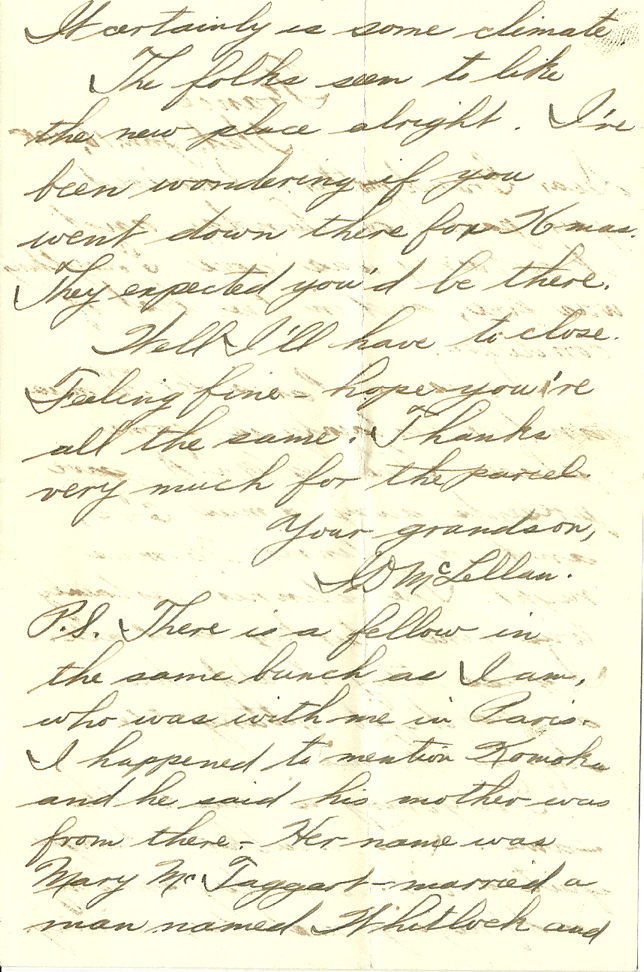 It certainly is some climate.
The folks seem to like
the new place alright. I've
been wondering if you
went down there for Xmas.
They expected you'd be there.
Well I'll have to close.
Feeling fine - hope you're
all the same. Thanks
very much for the parcel.
Your grandson,
McLellan.
P.S. There is a fellow in
the same bunch as I am,
who was with me in Paris.
I happened to mention Komoka
and he said his mother was
from there - Her name was
Mary McTaggart - married a
man named Whitlock and